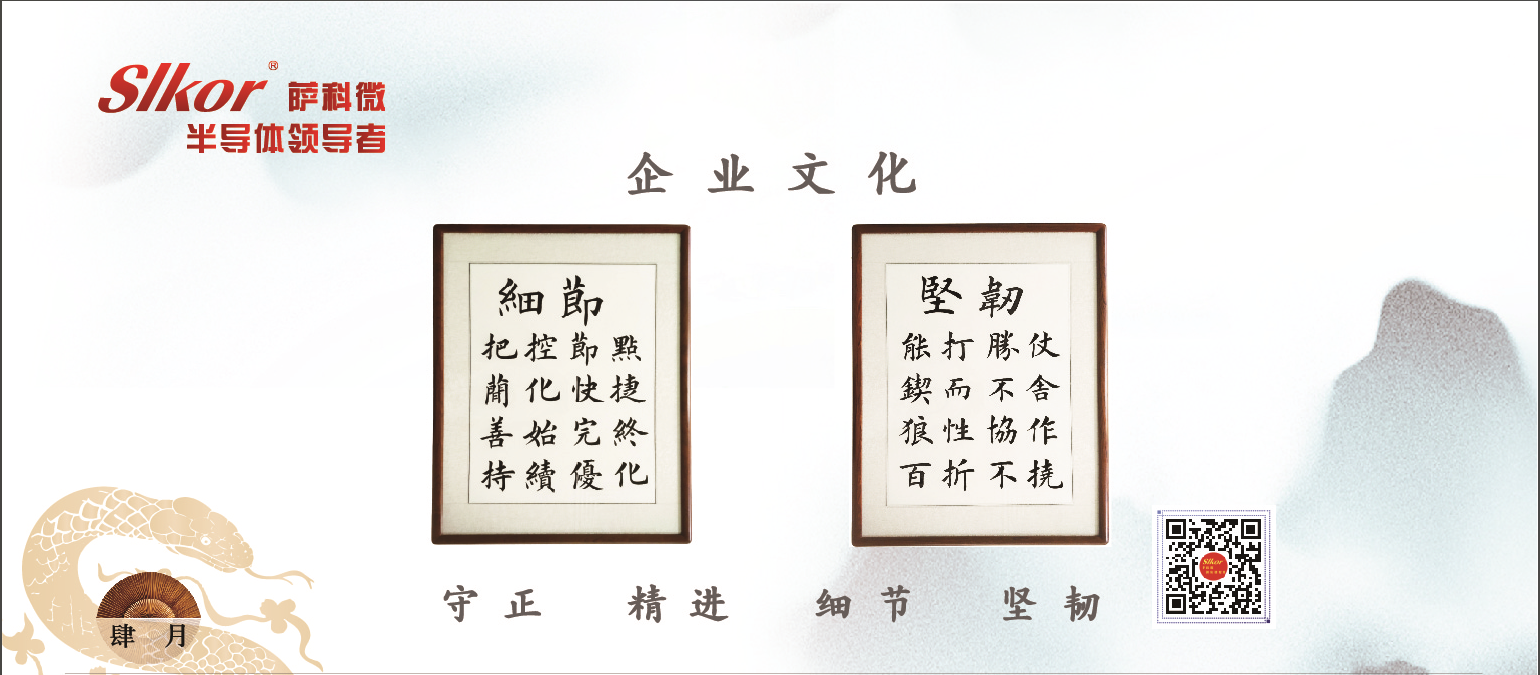 Slkor® 萨科微
半导体领导者
企业文化
細節
把控節點
蕳化快捷
善始完終
持續優化
堅韌
能打勝仗
鍥而不舍
狼性協作
百折不撓
守正 精进 细节 坚韧
肆月